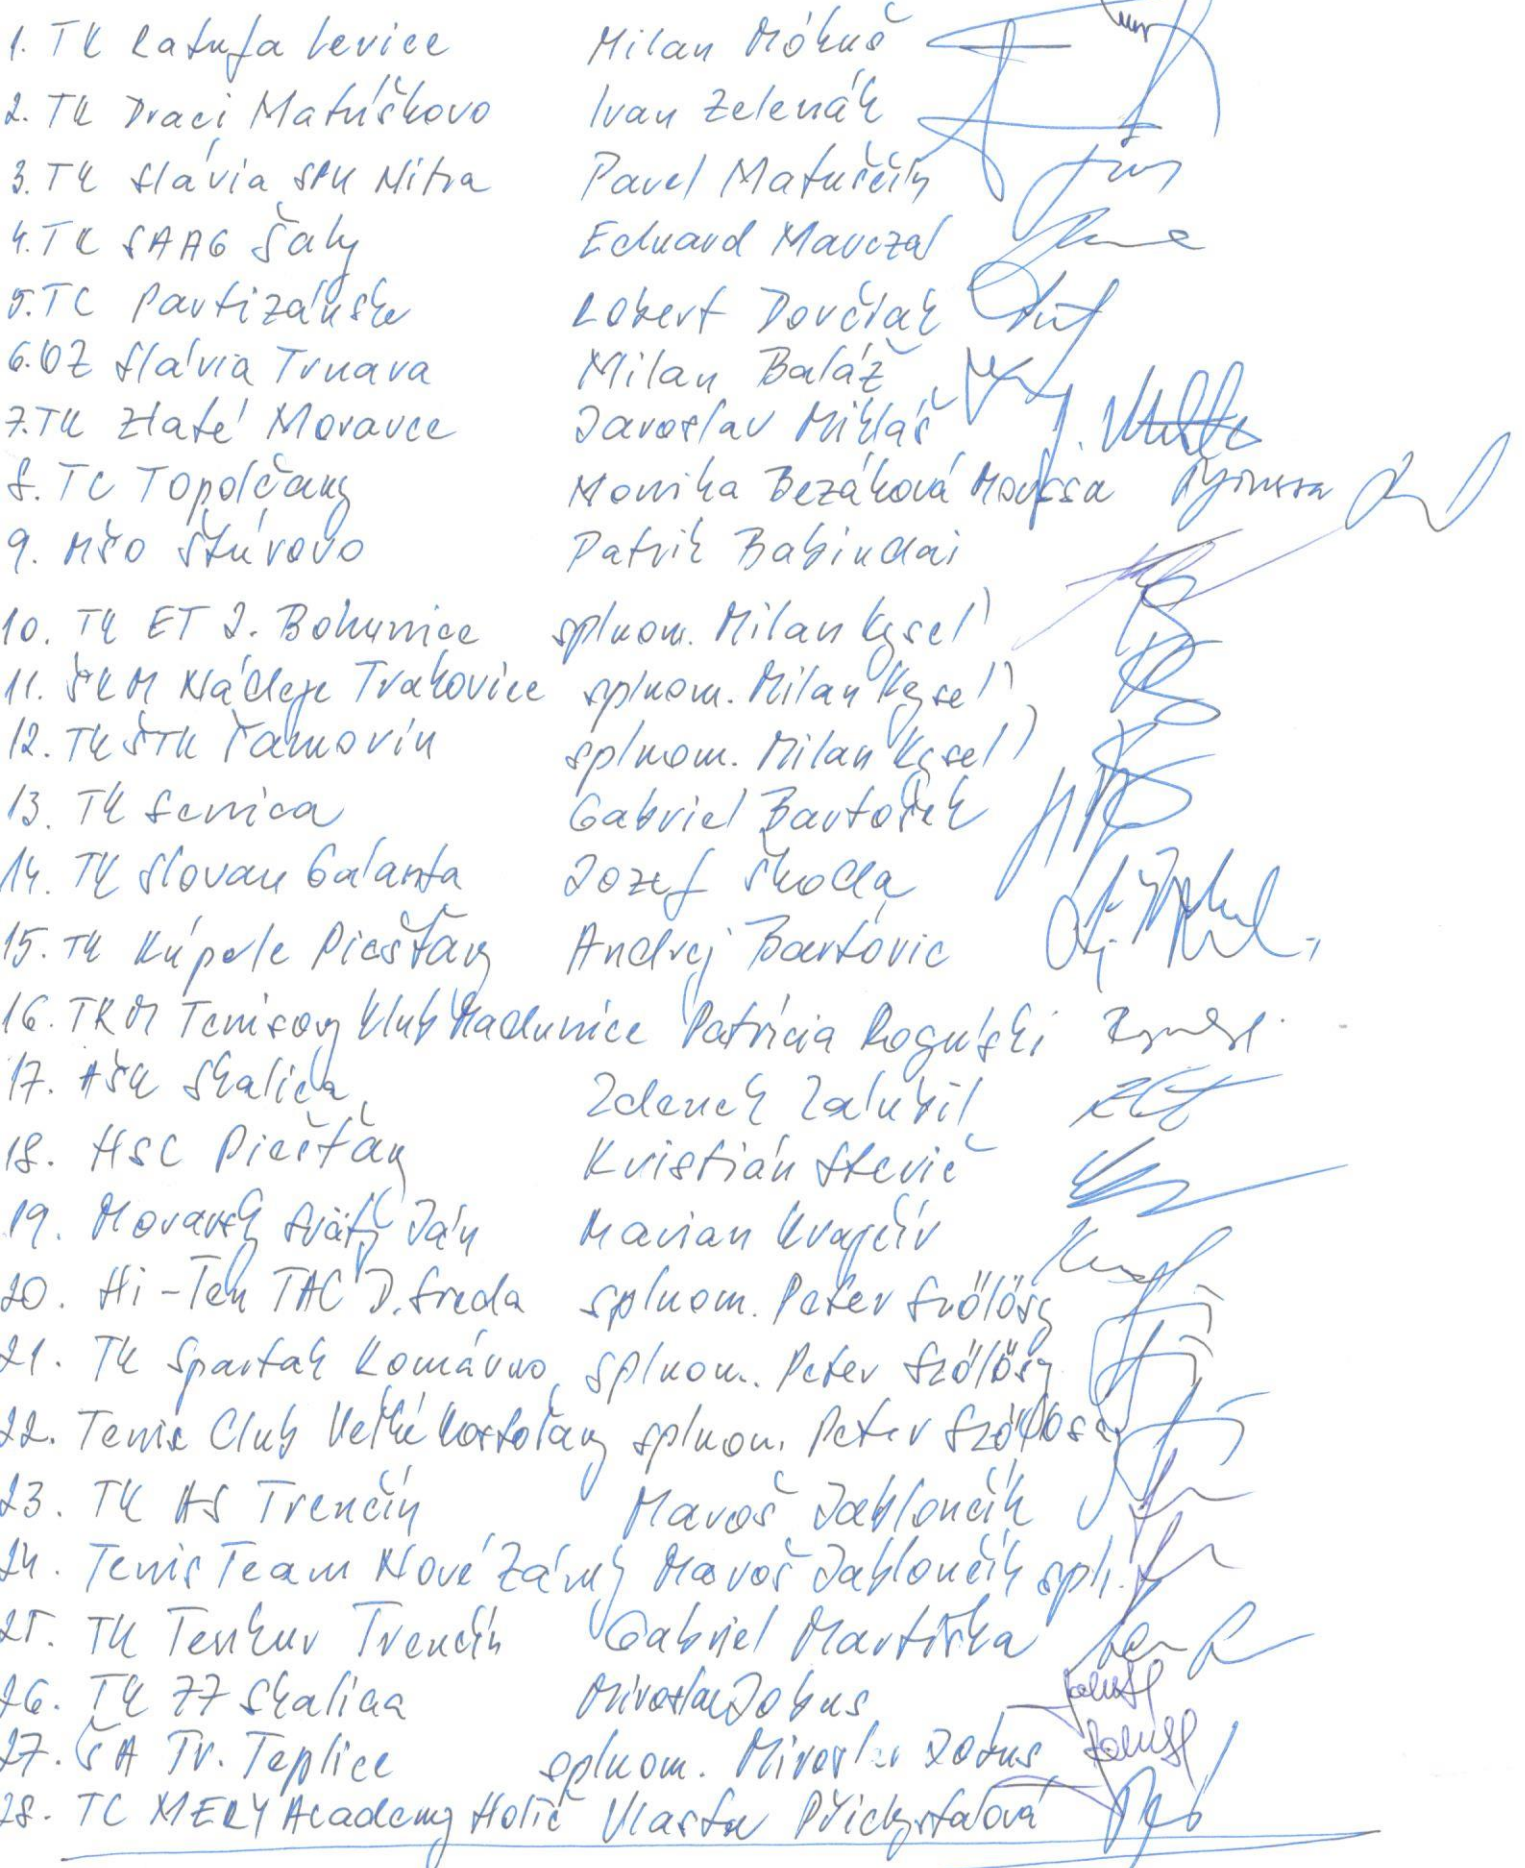 1. TK Ratufa Levice Milan Mókuš
2. TK Draci Matúškovo Ivan Zelenák
3. TK Slávia SPU Nitra Pavel Matuščín
4. TK SAAG Šaly Eduard Marczal
5. TC Partizánske Robert Dovčiak
6. OZ Slávia Trnava Milan Baláž
7. TK Zlaté Moravce Jaroslav Mikláš
8. TC Topoľčany Monika Bezáková Moussa
9. MŠO Štúrovo Patrik Babindai
10. TK ET J. Bohunice splnom. Milan Kyseľ
11. ŠKM Nádeje Trakovice splnom. Milan Kyseľ
12. TK ŠTK Šamorín splnom. Milan Kyseľ
13. TK Senica Gabriel Bartošek
14. TK Slovan Galanta Jozef Škoda
15. TK Kúpele Piešťany Andrej Bartovic
16. TKM Tenisový klub Madunice Patrícia Rogulski
17. AŠK Skalica Zdenek Zalubil
18. HSC Piešťany Kristián Stevič
19. Moravský Svätý Ján Marian Krajčír
20. Hi-Ten TAC D. Streda splnom. Peter Szőlősy
21. TK Spartak Komárno splnom. Peter Szőlősy
22. Tenis Club Veľké Kostoľany splnom. Peter Szőlősy
23. TK AS Trenčín Maroš Jablončík
24. Tenis Team Nové Zámky Maroš Jablončík spln.
25. TK Tenkur Trenčín Gabriel Martiška
26. TK 77 Skalica Miroslav Jobus
27. ŠA Tr. Teplice splnom. Miroslav Jobus
28. TC MERY Academy Holíč Vlasta Přichystalová